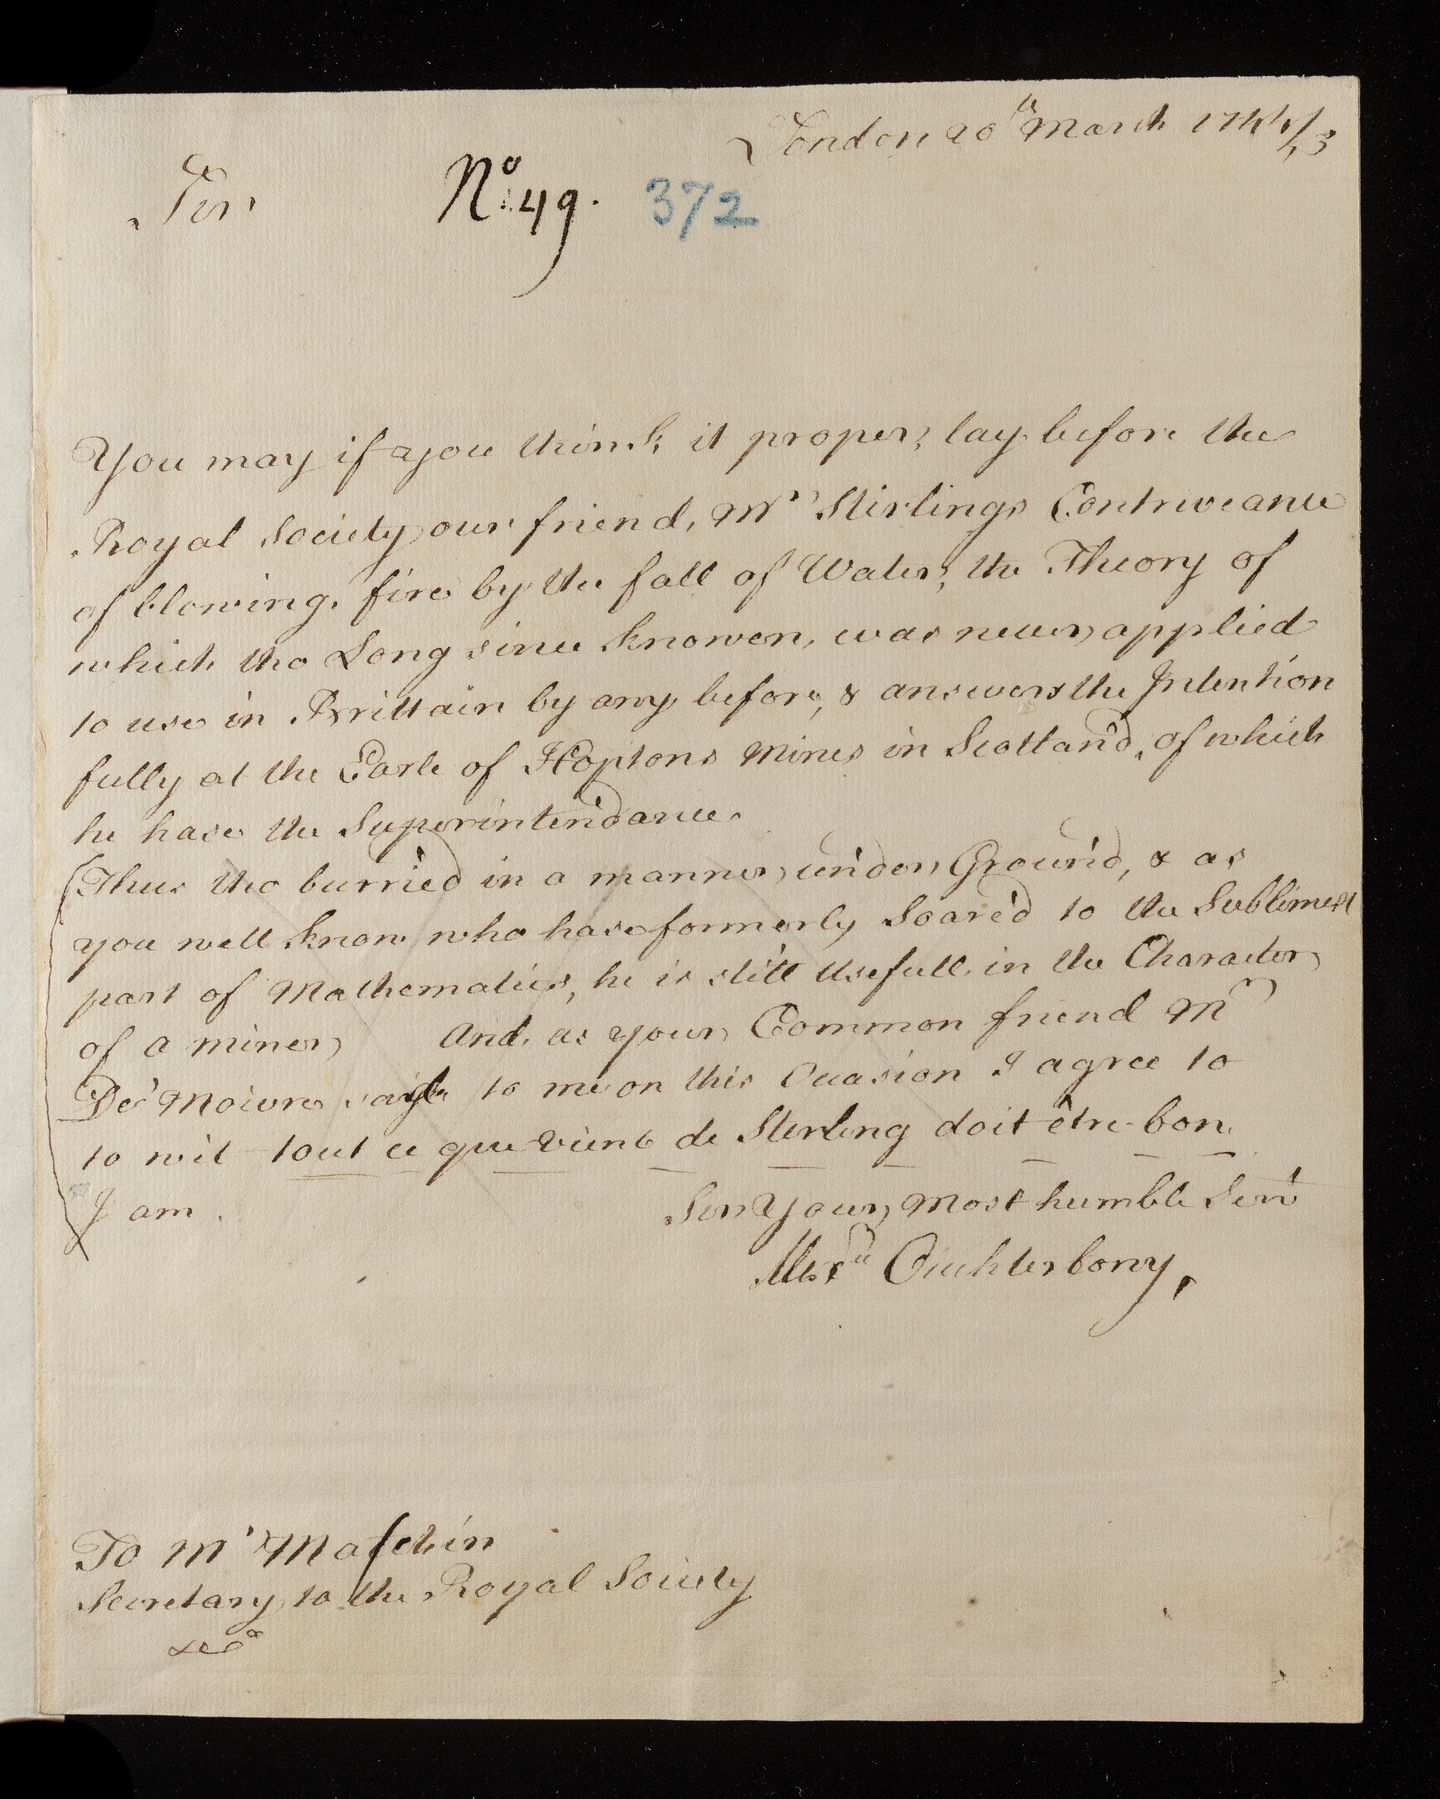 London 20th March 1744/5
Ser
No. 49. 372
You may if you think it proper, lay before the
Royal Society our friend, Mr Stirlings Contriveance
of blowing fire by the fall of Water, the Theory of
which tho Long since knowen, was never applied
to use in Brittain by any before, & answers the Intention
fully at the Earle of Hoptons Mines in Scotland, of which
he hase the Superintendance.
(Thus tho burried in a manner under Ground, & as
you well know who hase formerly Soared to the Sublimest
part of Mathematics, he is still usefull in the Character
of a miner And as your Common friend Mr
De Moivre says to me on this Ocasion I agree to
to wit tout ce que vient de Sterling doit être bon
I am
Ser Your most humble Servt
Alexr Ouchterlony,
To Mr Matchin
Secretary to the Royal Society